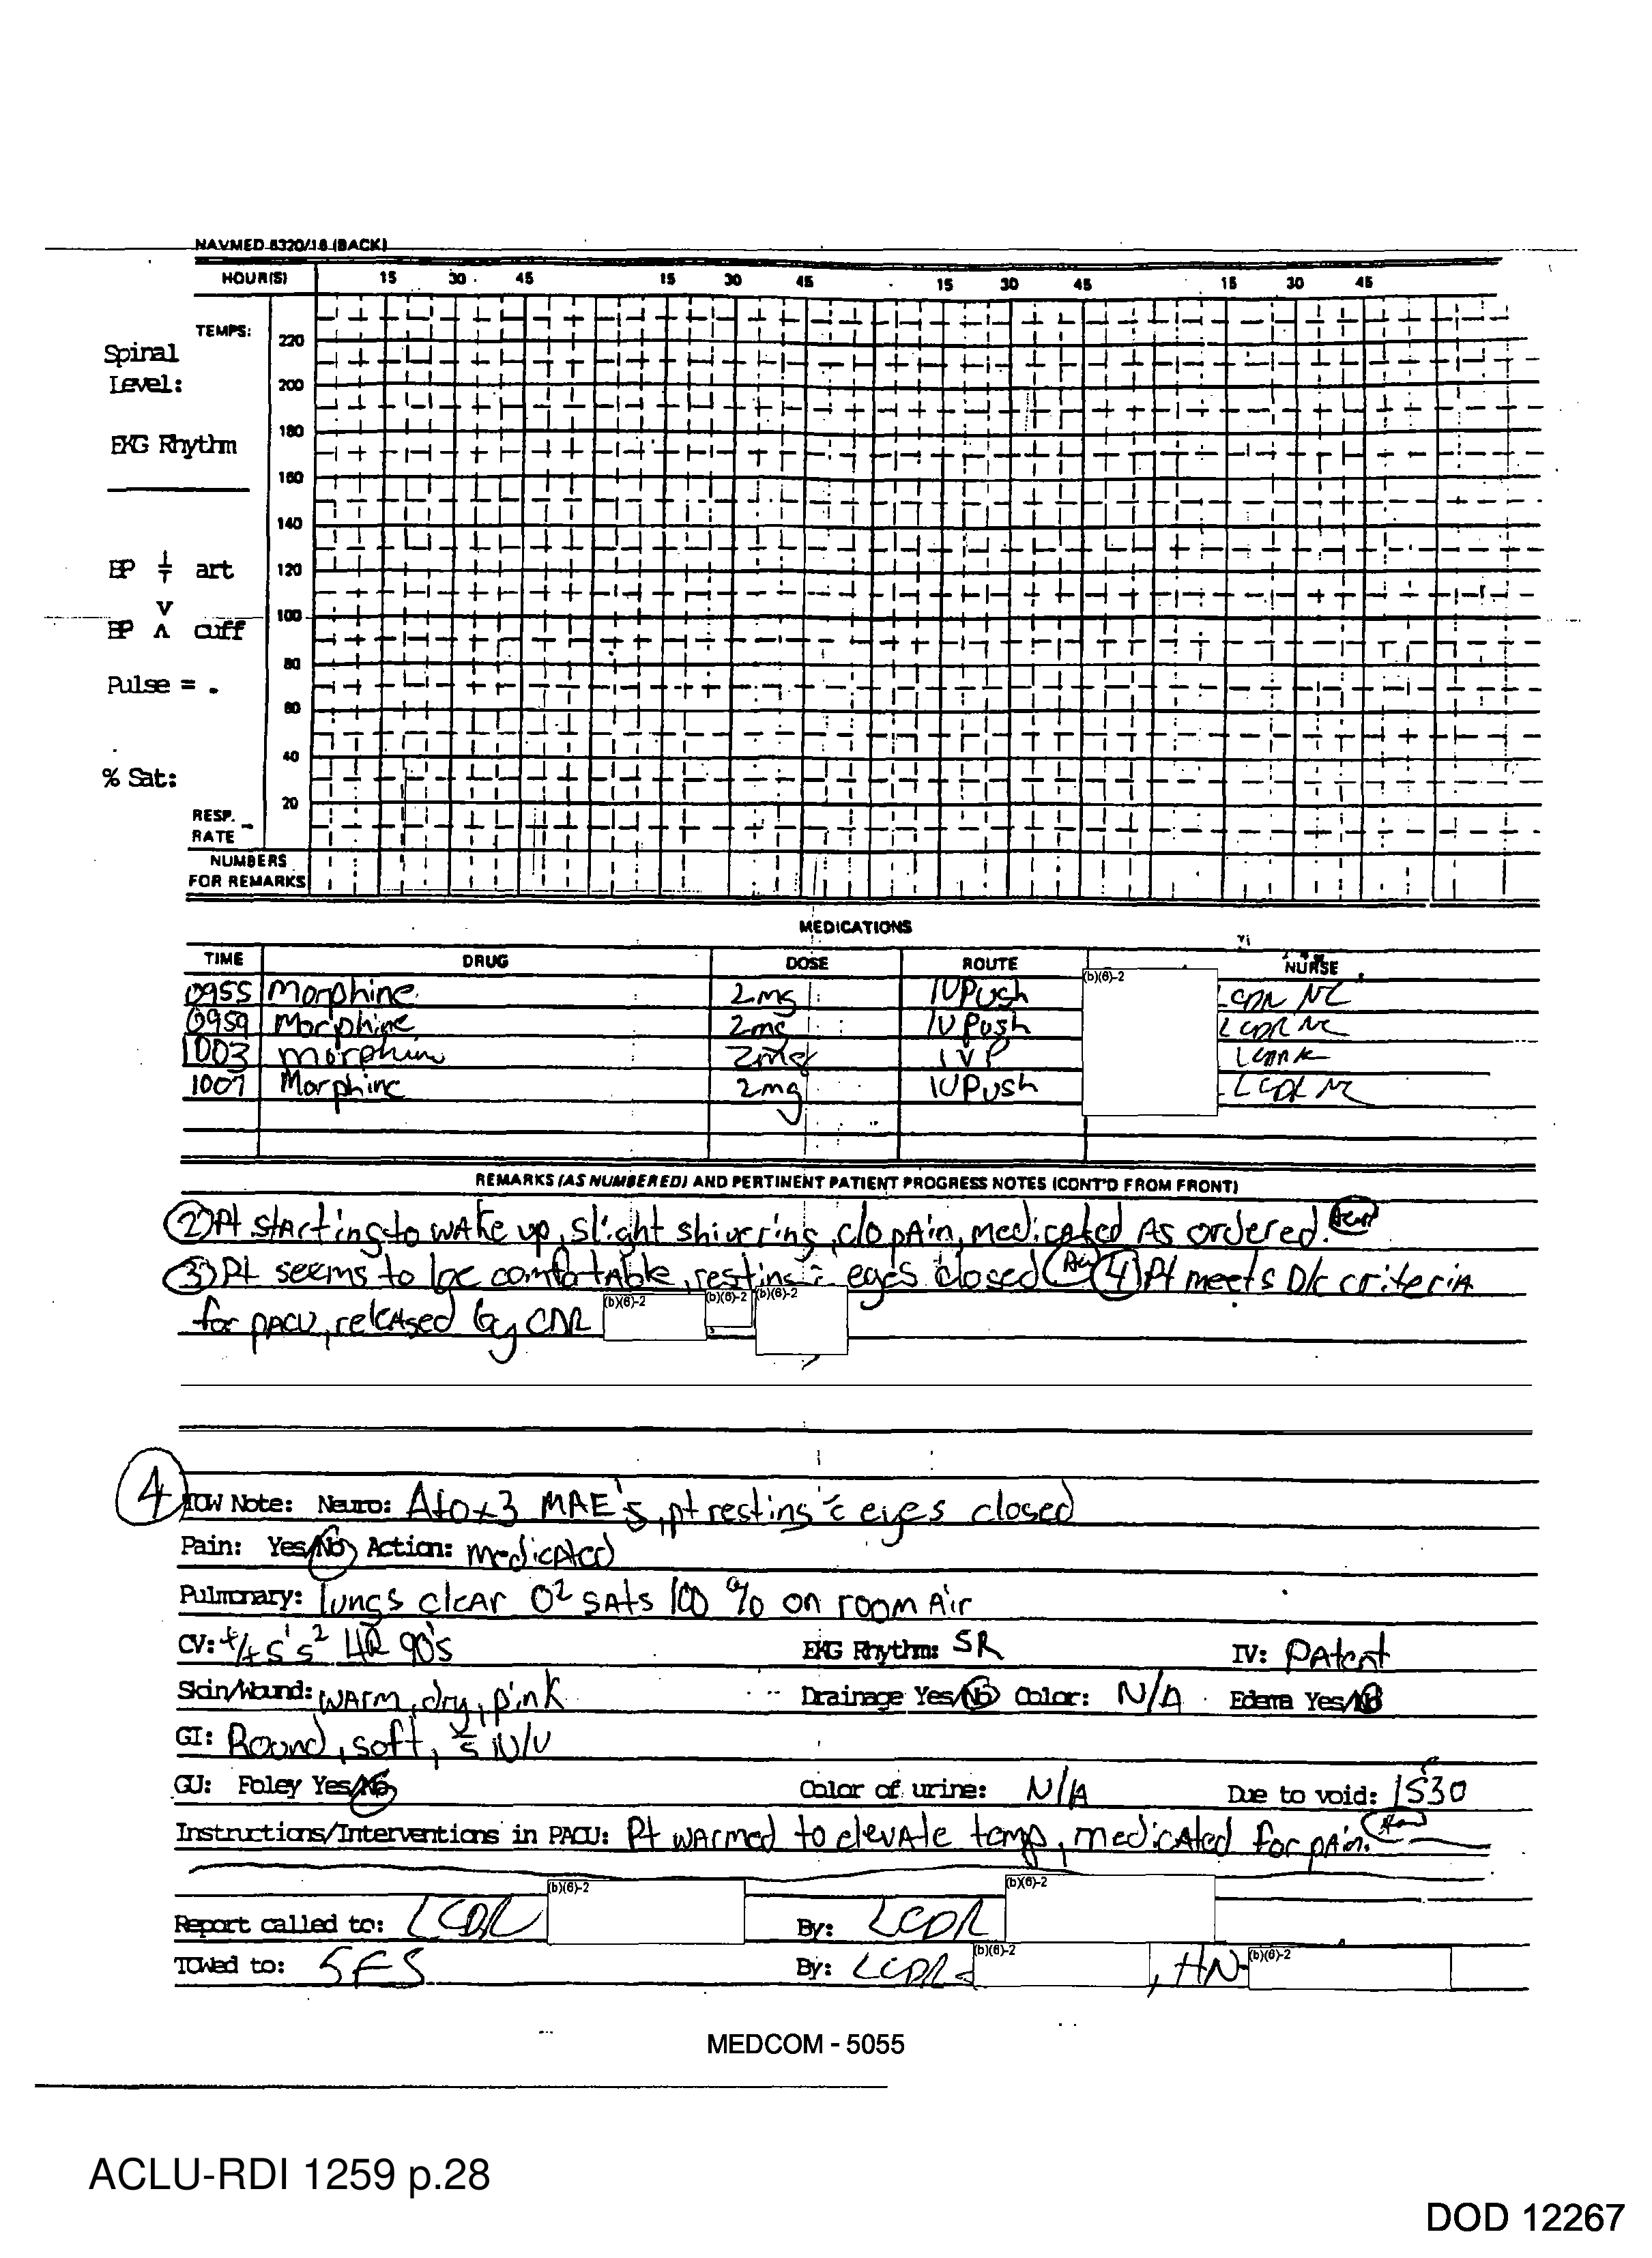 NAVMED 6320/18 (BACK)
HOUR(S) 15 30 45 15 30 45 15 30 45 15 30 45
TEMPS:
220
Spinal
Level:
200
180
EKG Rhythm
160
140
BP art
120
V
100
BP Λ cuff
80
Pulse = .
60
40
% Sat:
20
RESP.
RATE
NUMBERS
FOR REMARKS
MEDICATIONS
TIME DRUG DOSE ROUTE NURSE
(b)(6)-2
0955 Morphine 2mg IV Push LCDR NC
0959 Morphine 2mg IV Push LCDR NC
1003 morphine 2mg IVP
1007 Morphine 2mg IV Push LCDR NC
REMARKS (AS NUMBERED) AND PERTINENT PATIENT PROGRESS NOTES (CONT'D FROM FRONT)
2) Pt starting to wake up, slight shivering, c/o pain, medicated As ordered.
3) Pt seems to be comfortable, resting c̄ eyes closed 4) Pt meets D/c criteria
for PACU, released by CDR (b)(6)-2 (b)(6)-2 (b)(6)-2
4
TOW Note: Neuro: A+Ox3 MAE's, pt resting c̄ eyes closed
Pain: Yes/No Action: medicated
Pulmonary: lungs clear O2 sats 100 % on room Air
CV: +/+ s1s2 HR 90's EKG Rhythm: SR IV: Patent
Skin/Wound: warm, dry, pink Drainage Yes/No Color: N/A Edema Yes/No
GI: Round, soft, s̄ N/V
GU: Foley Yes/No Color of urine: N/A Due to void: 1530
Instructions/Interventions in PACU: Pt warmed to elevate temp, medicated for pain.
Report called to: LCDR (b)(6)-2 By: LCDR (b)(6)-2
TOWed to: SFS By: LCDR (b)(6)-2, HN (b)(6)-2
MEDCOM - 5055
ACLU-RDI 1259 p.28
DOD 12267